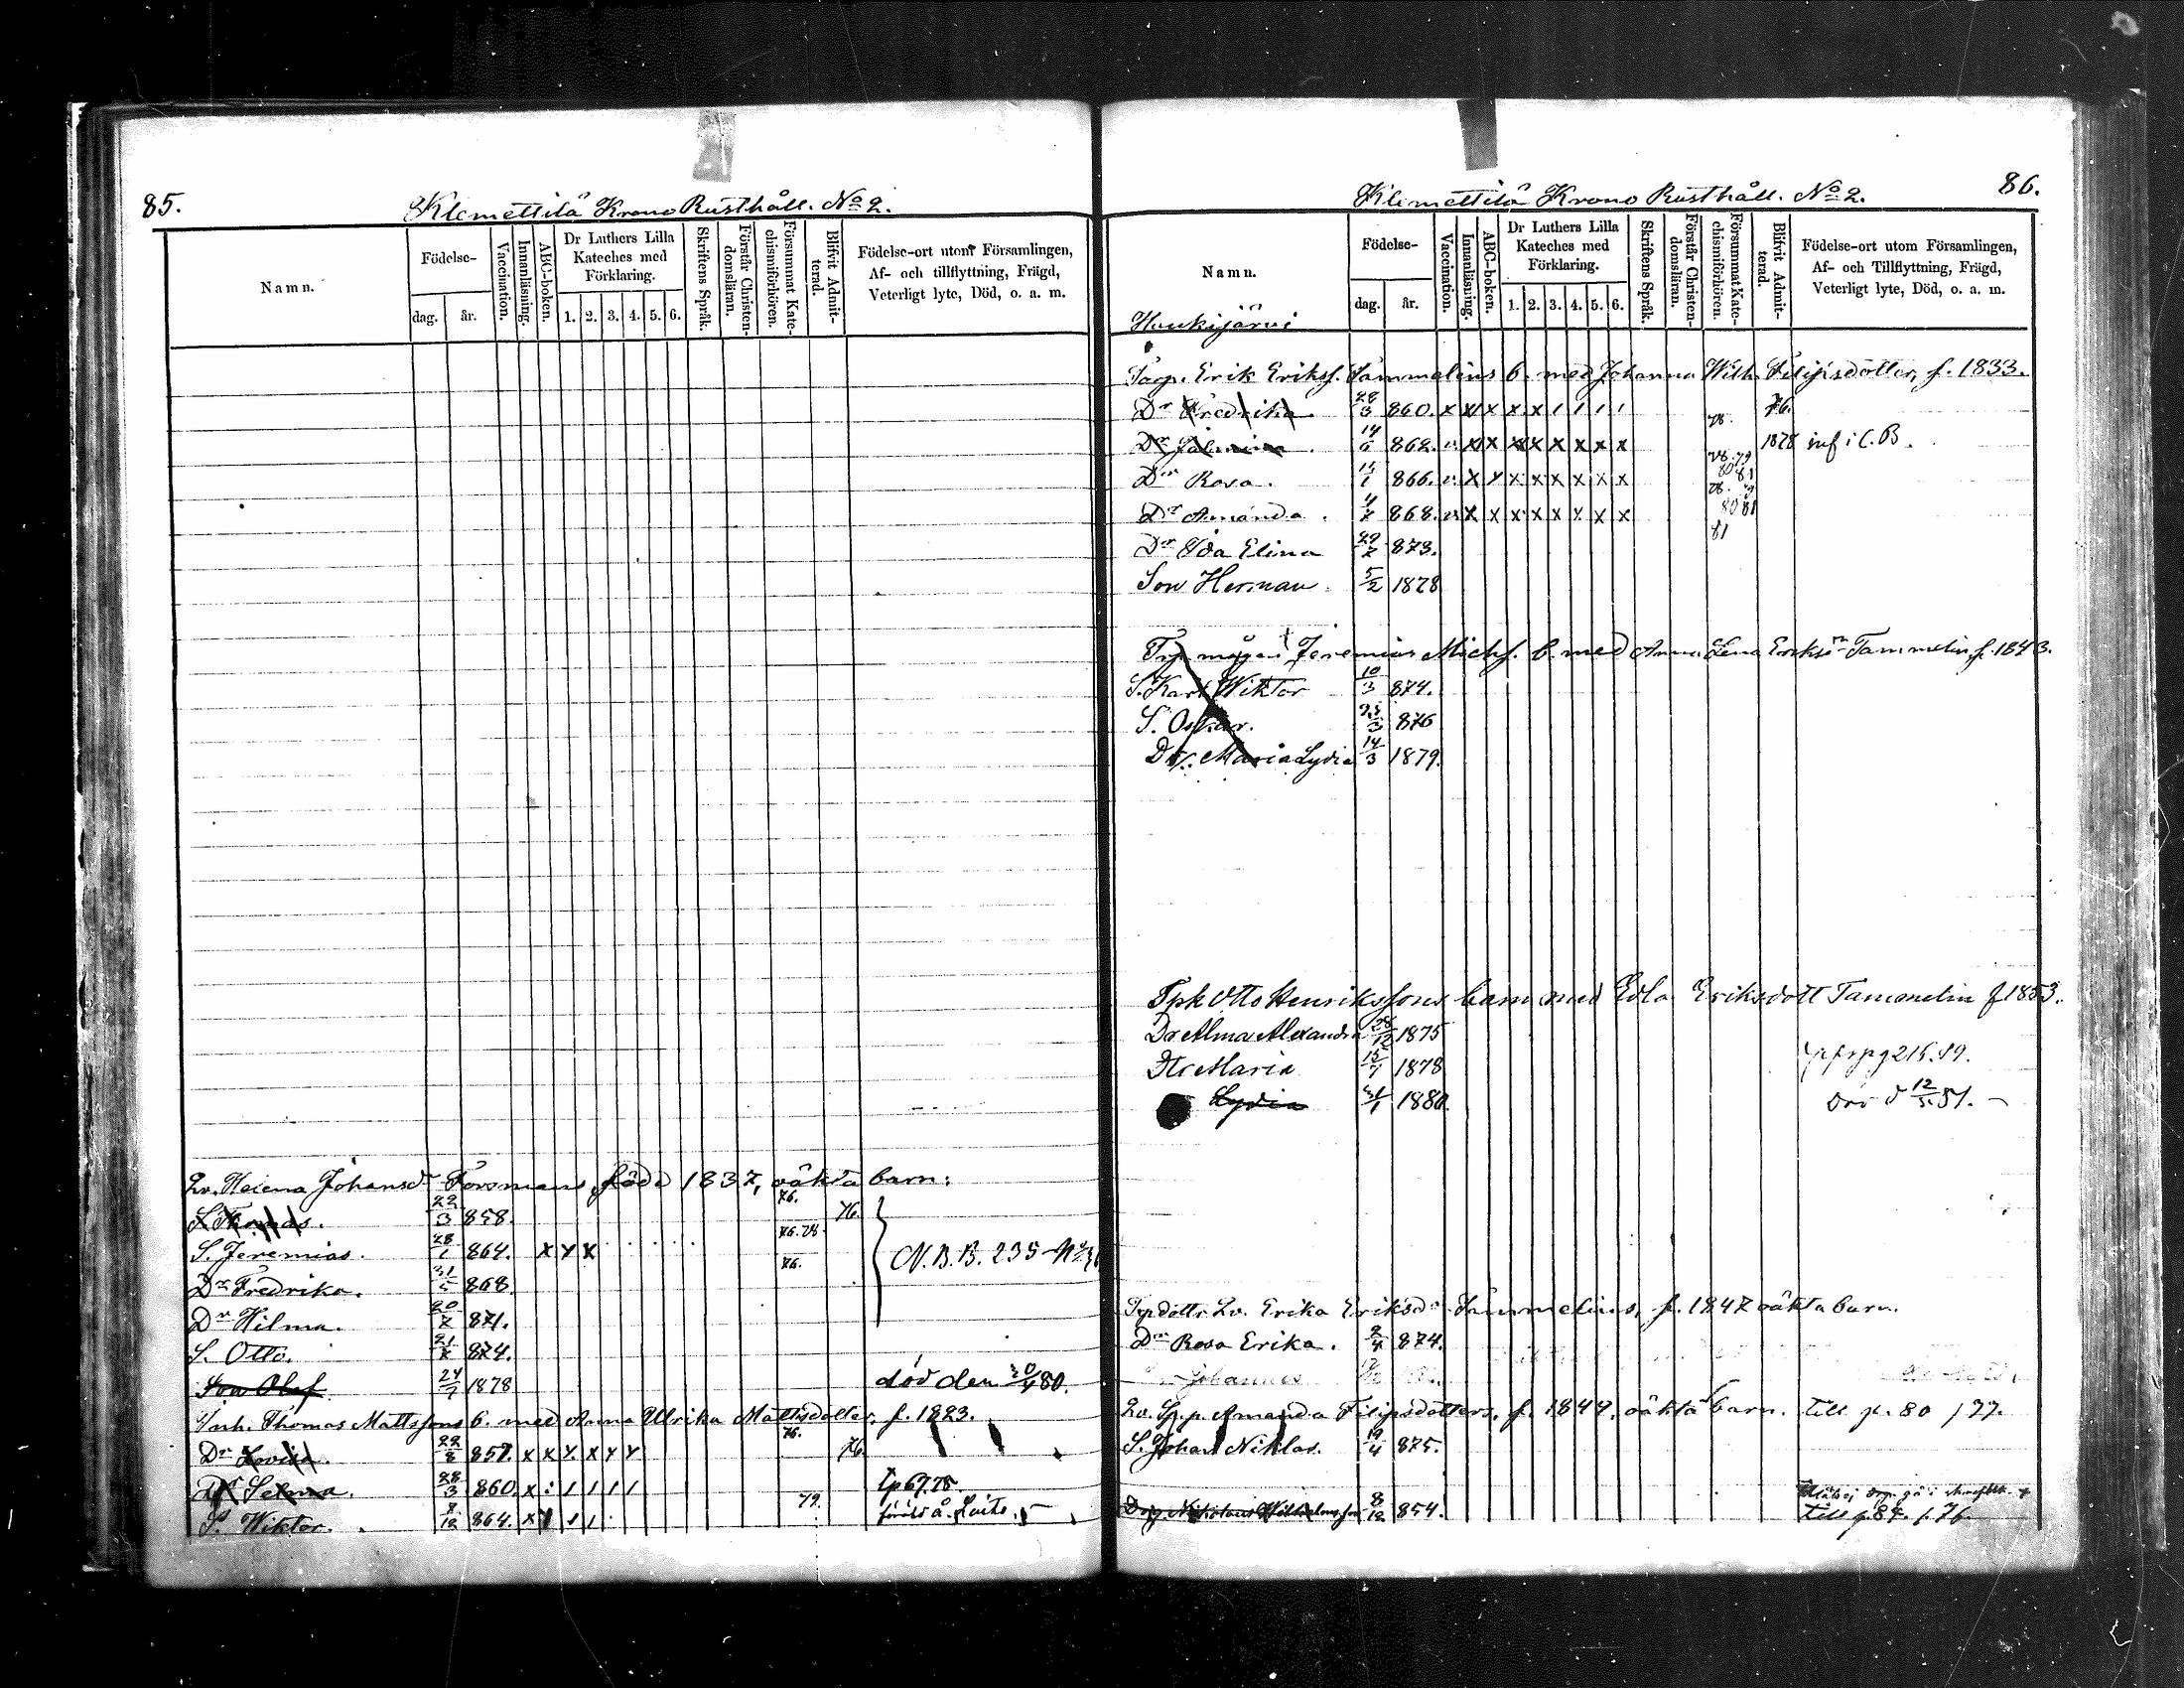 85.
Klemettilä Krono Rusthåll. No 2.
Namn.
Födelse-
dag.
år.
Vaccination.
Innanläsning.
ABC-boken.
Dr Luthers Lilla Kateches med Förklaring.
1. 2. 3. 4. 5. 6.
Skriftens Språk.
Förstår Christendomsläran.
Försummat Katechismiförhören.
Blifvit Admitterad.
Födelse-ort utom Församlingen,
Af- och tillflyttning, Frägd,
Veterligt lyte, Död, o. a. m.
Helena Johansdr Forsmans, född 1837, oäkta barn:
S. Thomas. 22/3 858. 76. 76.
S. Jeremias. 28/1 864. x x x 76. 78.
Dr Fredrika. 31/5 868 76. N.B.B. 235
Dr Hilma. 20/7 871.
S. Otto. 21/7 874.
Son Olof 24/7 1878 död den 30/4 80.
Inh. Thomas Mattssons b. med Anna Ulrika Mattsdotter, f. 1823.
Dr Lovisa. 22/8 857. x x x x x x 76. 76.
Dr Selma. 28/3 860. x 1 1 1 1 Lp 67.78.
S. Wiktor. 8/12 864. x 79.
86.
Klemettilä Krono Rusthåll. No 2.
Namn.
Födelse-
dag.
år.
Vaccination.
Innanläsning.
ABC-boken.
Dr Luthers Lilla Kateches med Förklaring.
1. 2. 3. 4. 5. 6.
Skriftens Språk.
Förstår Christendomsläran.
Försummat Katechismiförhören.
Blifvit Admitterad.
Födelse-ort utom Församlingen,
Af- och Tillflyttning, Frägd,
Veterligt lyte, Död, o. a. m.
Haukijärvi
Torp. Erik Erikss. Tammelins b. med Johanna Wilh. Filipsdotter, f. 1833.
Dr Fredrika. 28/3 860. x x x x x 1 1 1 1 78. 76.
Dr 14/6 862. v. x x x x x x x x 78.79 1878 inf i C.B.
Dr Rosa. 866. v. x x x x x x x x 80 81
Dr Amanda. 868. v. x x x x x x x x 80 81
Dr Ida Elina 29/7 873. 81
Son Herman. 5/2 1878
Trp mågen Jeremias Michs. b. med Anna Lena Eriksdr Tammelin, f. 1843.
S. Karl Wiktor 10/3 874.
S. Oskar. 25/3 876
Dr. Maria Lydia 14/3 1879.
Tpk Otto Henrikssons barn med Edla Eriksdott Tammelin f 1853.
Dr Alma Alexandra 1875
Dr Maria 15/1 1878
Lydia 31/1 1880. död 12/5 81.
Trpdottr Erika Eriksdr Tammelins, f. 1847 oäkta barn.
Dr Rosa Erika. 9/4 874.
Johannes
Amanda Filipsdotters, f. 1849, oäkta barn. till p. 80 / 77.
S. Johan Niklas. 19/4 875.
Drg. Nikolaus Wilhelmsson 8/12 854. till p 84. / 76.